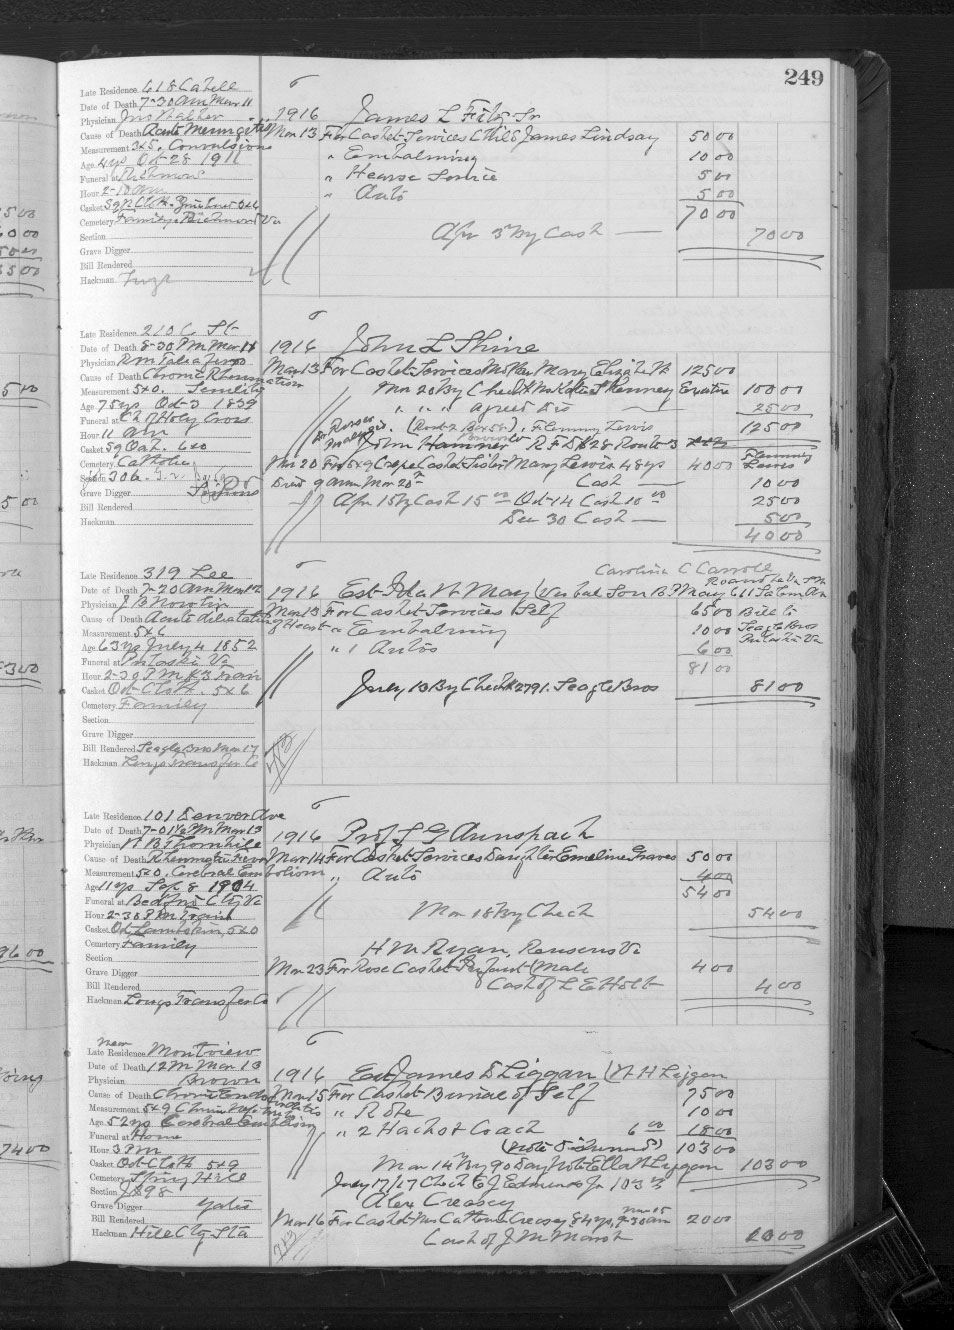 249
Late Residence 618 Cabell
Date of Death 7-30 am Mar 11
Physician Jno Walker
Cause of Death Acute Meningitis
Measurement 3x5. Convulsions
Age 4 ys Oct 28 1911
Funeral at Richmond
Hour 2-10 am
Casket
Cemetery Family Richmond Va
Section
Grave Digger
Bill Rendered
Hackman
1916 James L Fitz Jr
Mar 13 For Casket Services Child James Lindsay 50 00
" Embalming 10 00
" Hearse Service 5 00
" Auto 5 00
70 00
Apr 3 By Cash 70 00
Late Residence 210 C St
Date of Death 8-30 Pm Mar 11
Physician R M Taliaferro
Cause of Death Chronic Rheumatism
Measurement 5x0. Senility
Age 75 ys Oct 3 1839
Funeral at Ch of Holy Cross
Hour 11 am
Casket Sq Oct. 6x0
Cemetery Catholic
Section 306
Grave Digger
Bill Rendered
Hackman
1916 John L Shine
Mar 13 For Casket Services Mary Elizabeth 125 00
Mar 20 By Check Kenney 100 00
" " " agreed Dis 25 00
Flemming Lewis 125 00
John Hammer R F D #2 Route 3
Mar 20 For 5x9 Crepe Casket Sister Mary Lewis 48 ys 40 00 Flemming Lewis
Died 9 am Mar 20th Cash 10 00
Apr 15 By Cash 15 00 Oct 14 Cash 10 00 25 00
Dec 30 Cash 5 00
40 00
Caroline C Carroll
Late Residence 319 Lee
Date of Death 7-20 am Mar 12
Physician J B Nowlin
Cause of Death Acute dilatation of Heart
Measurement 5x6
Age 63 ys July 4 1852
Funeral at Pulaski Va
Hour 2-39 PM #3 Train
Casket Oct Cloth. 5x6
Cemetery Family
Section
Grave Digger
Bill Rendered Seagle Bros Mar 17
Hackman Longs Transfer Co
1916 Est Ida W May (Verbal Son B F May 611 Salem Ave Roanoke Va
Mar 13 For Casket Services Self 65 00 Bill to
" Embalming 10 00 Seagle Bros
" 1 Autos 6 00 Pulaski Va
81 00
July 13 By Check #2791. Seagle Bros 81 00
Late Residence 101 Denver Ave
Date of Death 7-01½ Pm Mar 13
Physician W B Thornhill
Cause of Death Rheumatic Fever
Measurement 5x0. Cerebral Embolism
Age 11 ys Sep 8 1904
Funeral at Bedford City Va
Hour 2-38 PM Train
Casket Oct Lambskin, 5x0
Cemetery Family
Section
Grave Digger
Bill Rendered
Hackman Longs Transfer Co
1916 Prof L G Aunspach
Mar 14 For Casket Services Daughter Emeline Graves 50 00
" Auto 4 00
54 00
Mar 18 By Check 54 00
H M Ryan, Rensens Va
Mar 23 For Rose Casket Infant (Male 4 00
Cash of L E Holt 4 00
Late Residence near Montview
Date of Death 12 M Mar 13
Physician Brown
Cause of Death
Measurement 5x9
Age 52 ys Cerebral Embolism
Funeral at Home
Hour 3 Pm
Casket Oct Cloth 5x9
Cemetery Spring Hill
Section J 898
Grave Digger Yates
Bill Rendered
Hackman Hill City Sta
1916 Est James D Liggan (W H Liggan
Mar 15 For Casket Burial of Self 75 00
" Robe 10 00
" 2 Hacks & Coach 6 00 18 00
103 00
Mar 14 By 90 Day Note Ella H Liggan 103 00
July 17/17 Check E J Edmunds Jr 103
Alex Creasey
Mar 16 For Casket Mrs Catharine Creasey 84 ys, 7-30 am Mar 15 20 00
Cash of J M Marsh 20 00